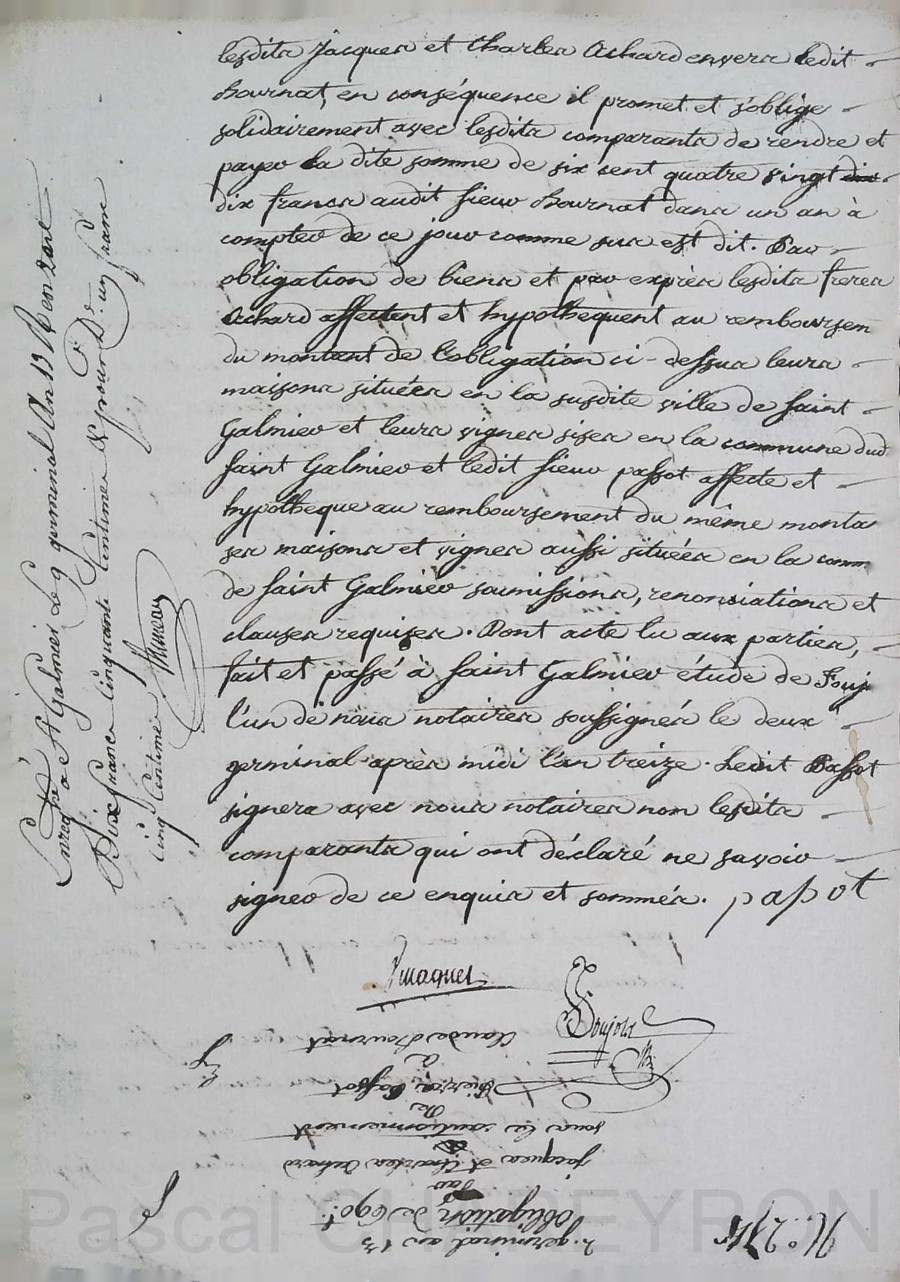 lesdits Jacques et Charles Achard envers ledit
hournat, en conséquence il promet et s'oblige
solidairement avec lesdits comparants de rendre et
payer la dite somme de six cent quatre vingt
dix francs audit sieur hournat dans un an à
compter de ce jour comme sus est dit. Par
obligation de biens et par exprès lesdits freres
Achard affectent et hypothequent au remboursem
du montant de l'obligation ci-dessus leurs
maisons situées en la susdite ville de saint
Galmier et leurs vignes sises en la commune dud
saint Galmier et ledit sieur passot affecte et
hypotheque au remboursement du même monta
ses maisons et vignes aussi situées en la comm
de saint Galmier soumissions, renonciations et
clauses requises. Dont acte lu aux parties,
fait et passé à saint Galmier étude de Souj
l'un de nous notaires soussignés le deux
germinal après midi l'an treize. Ledit Passot
signera avec nous notaires non lesdits
comparants qui ont déclaré ne savoir
signer de ce enquis et sommés. passot
Enregistré A Galmier Le 9 germinal An 13
Dix francs cinquante Centimes & pour D.e un franc
cinq Centimes
2. germinal an 13
obligation de 690f.
par
Jacques et Charles Achard
sous le cautionnement
de
Pierre Passot
à
Claude hournat
Pascal CHAPEYRON